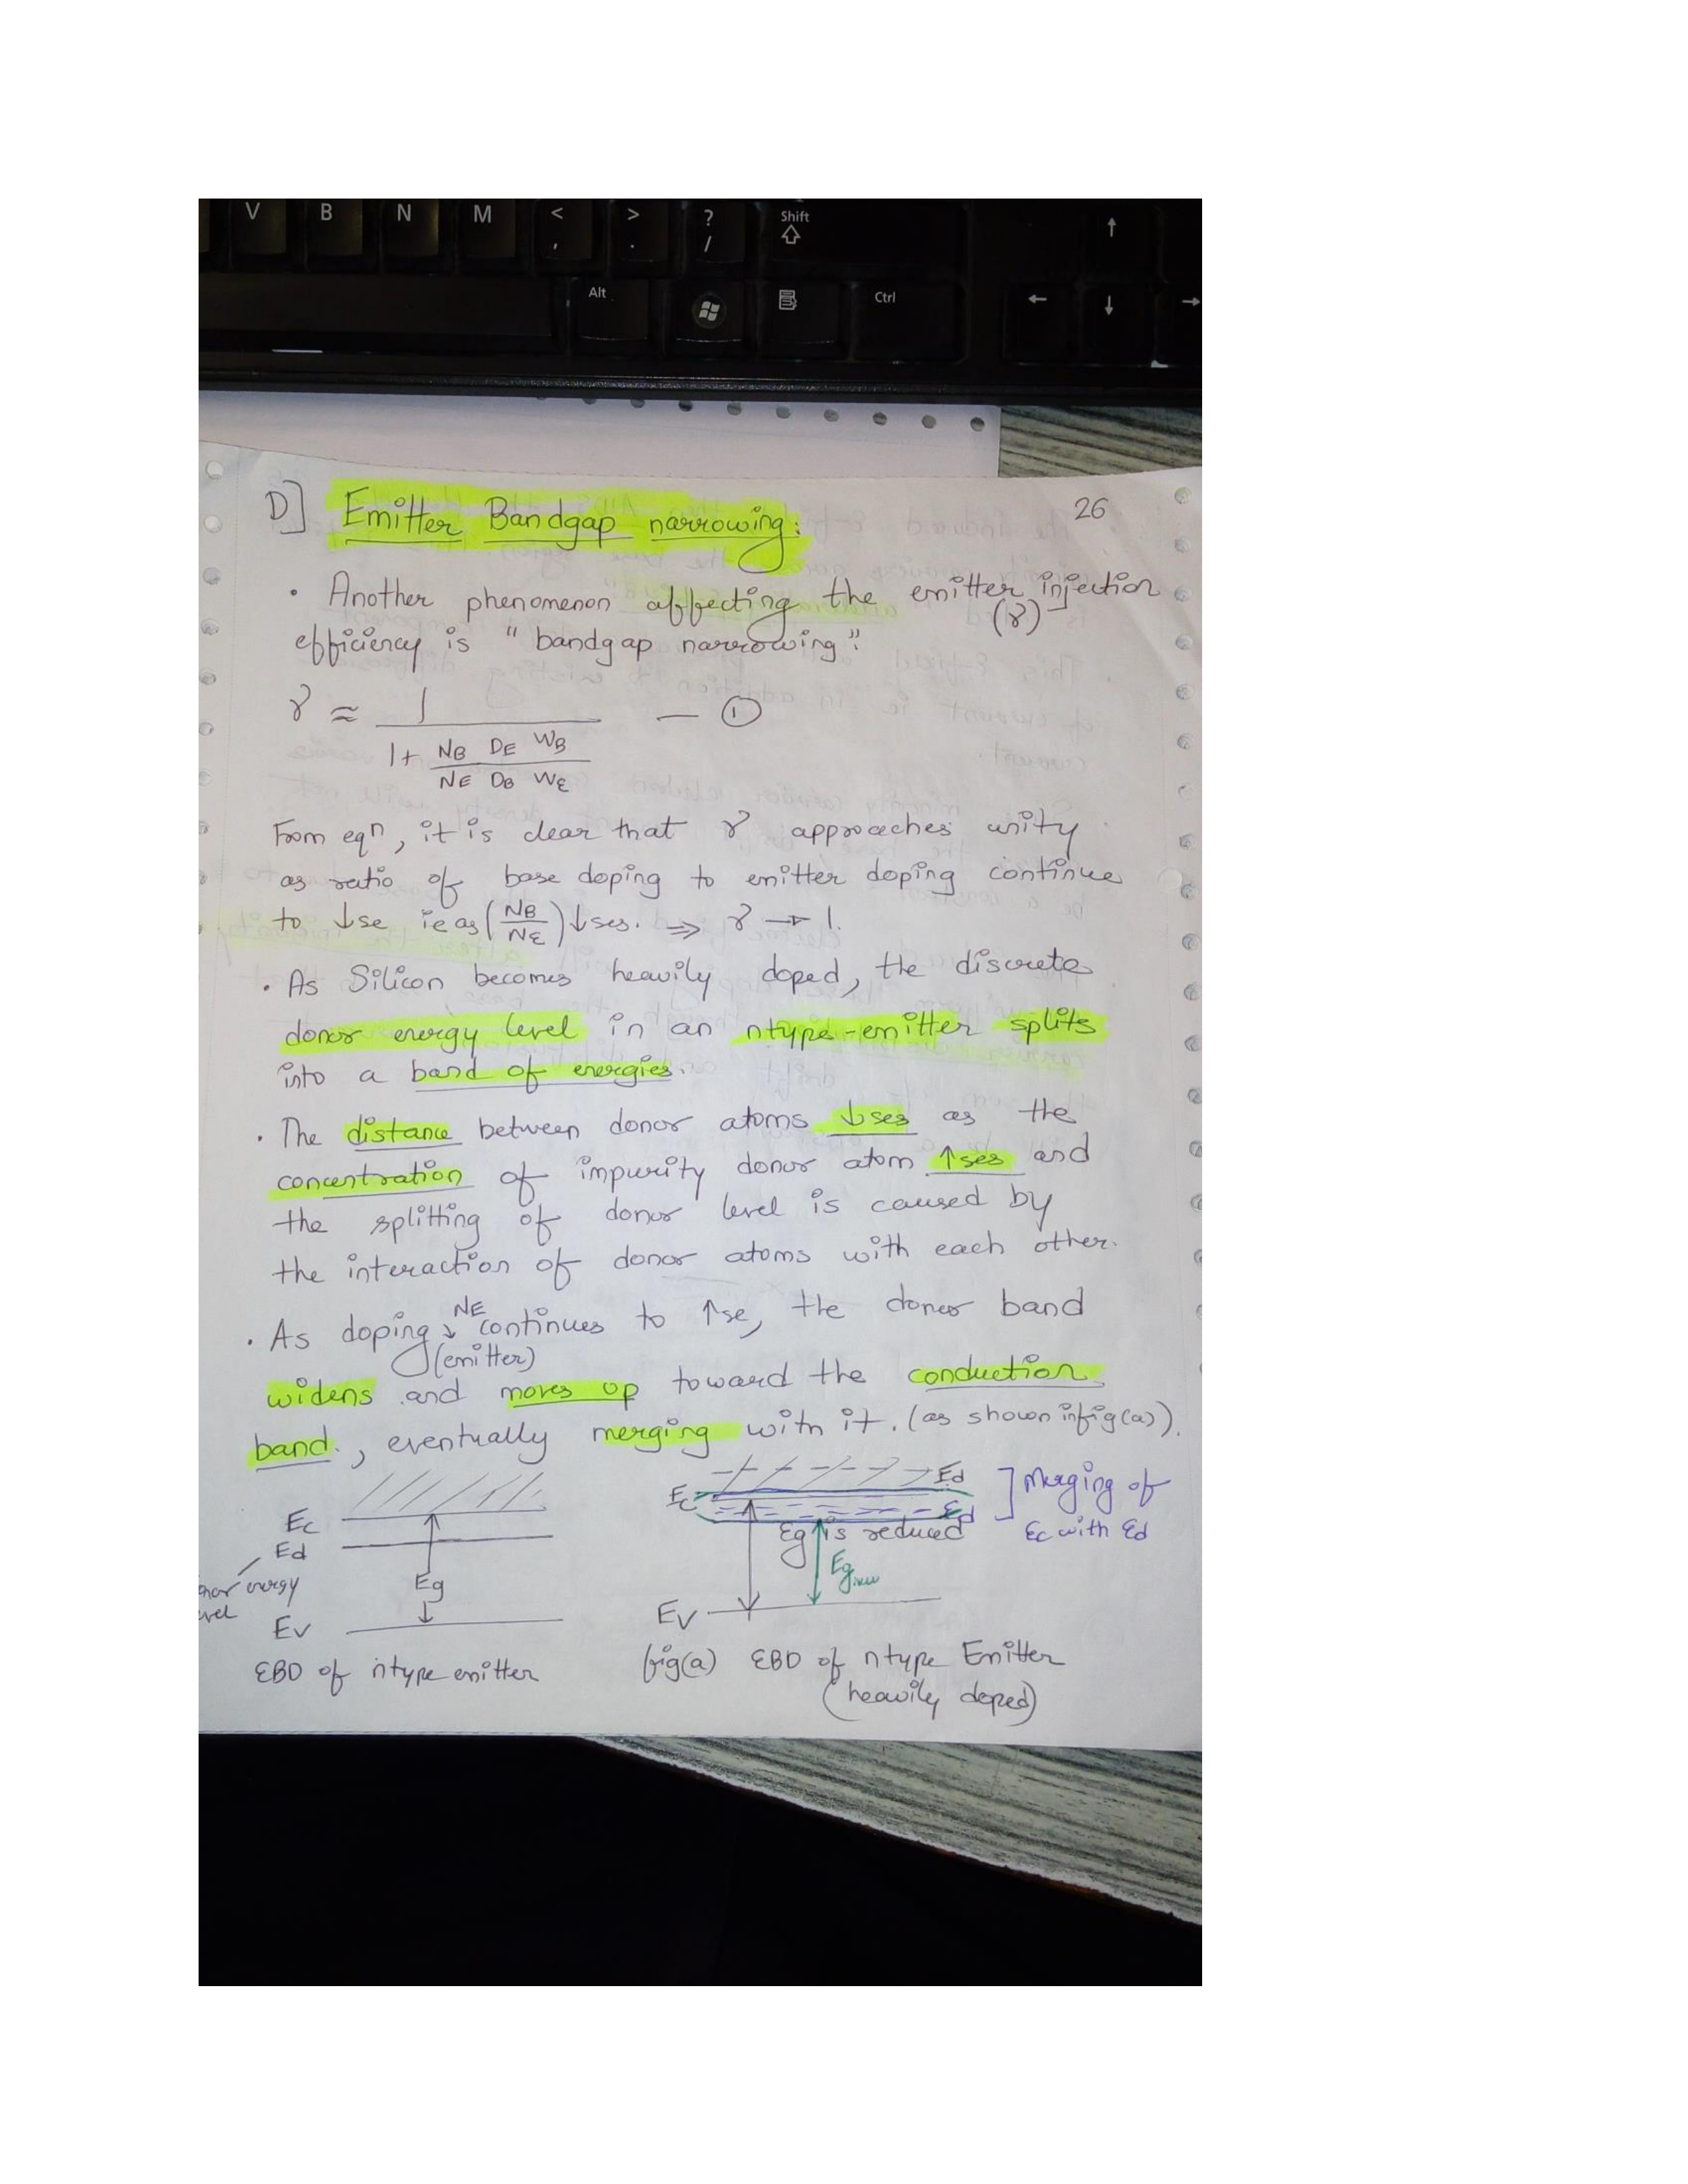 V B N M < , > . ? / Shift ↑
Alt Ctrl ← ↓ →
26
D] Emitter Bandgap narrowing:
• Another phenomenon affecting the emitter injection
(γ)
efficiency is "bandgap narrowing".
γ ≈ 1 / (1 + (NB DE WB) / (NE DB WE)) — ①
From eqn, it is clear that γ approaches unity
as ratio of base doping to emitter doping continue
to ↓se ie as (NB/NE) ↓ses. ⇒ γ → 1.
• As Silicon becomes heavily doped, the discrete
donor energy level in an ntype-emitter splits
into a band of energies.
• The distance between donor atoms ↓ses as the
concentration of impurity donor atom ↑ses and
the splitting of donor level is caused by
the interaction of donor atoms with each other.
NE
• As doping ↓ continues to ↑se, the donor band
(emitter)
widens and moves up toward the conduction
band, eventually merging with it. (as shown in fig(a)).
Ec
Ed
nor energy
vel
Eg
Ev
EBD of ntype emitter
Ed
Ec
Ed
] Merging of
Ec with Ed
Eg is reduced
Eg new
Ev
fig(a) EBD of ntype Emitter
(heavily doped)